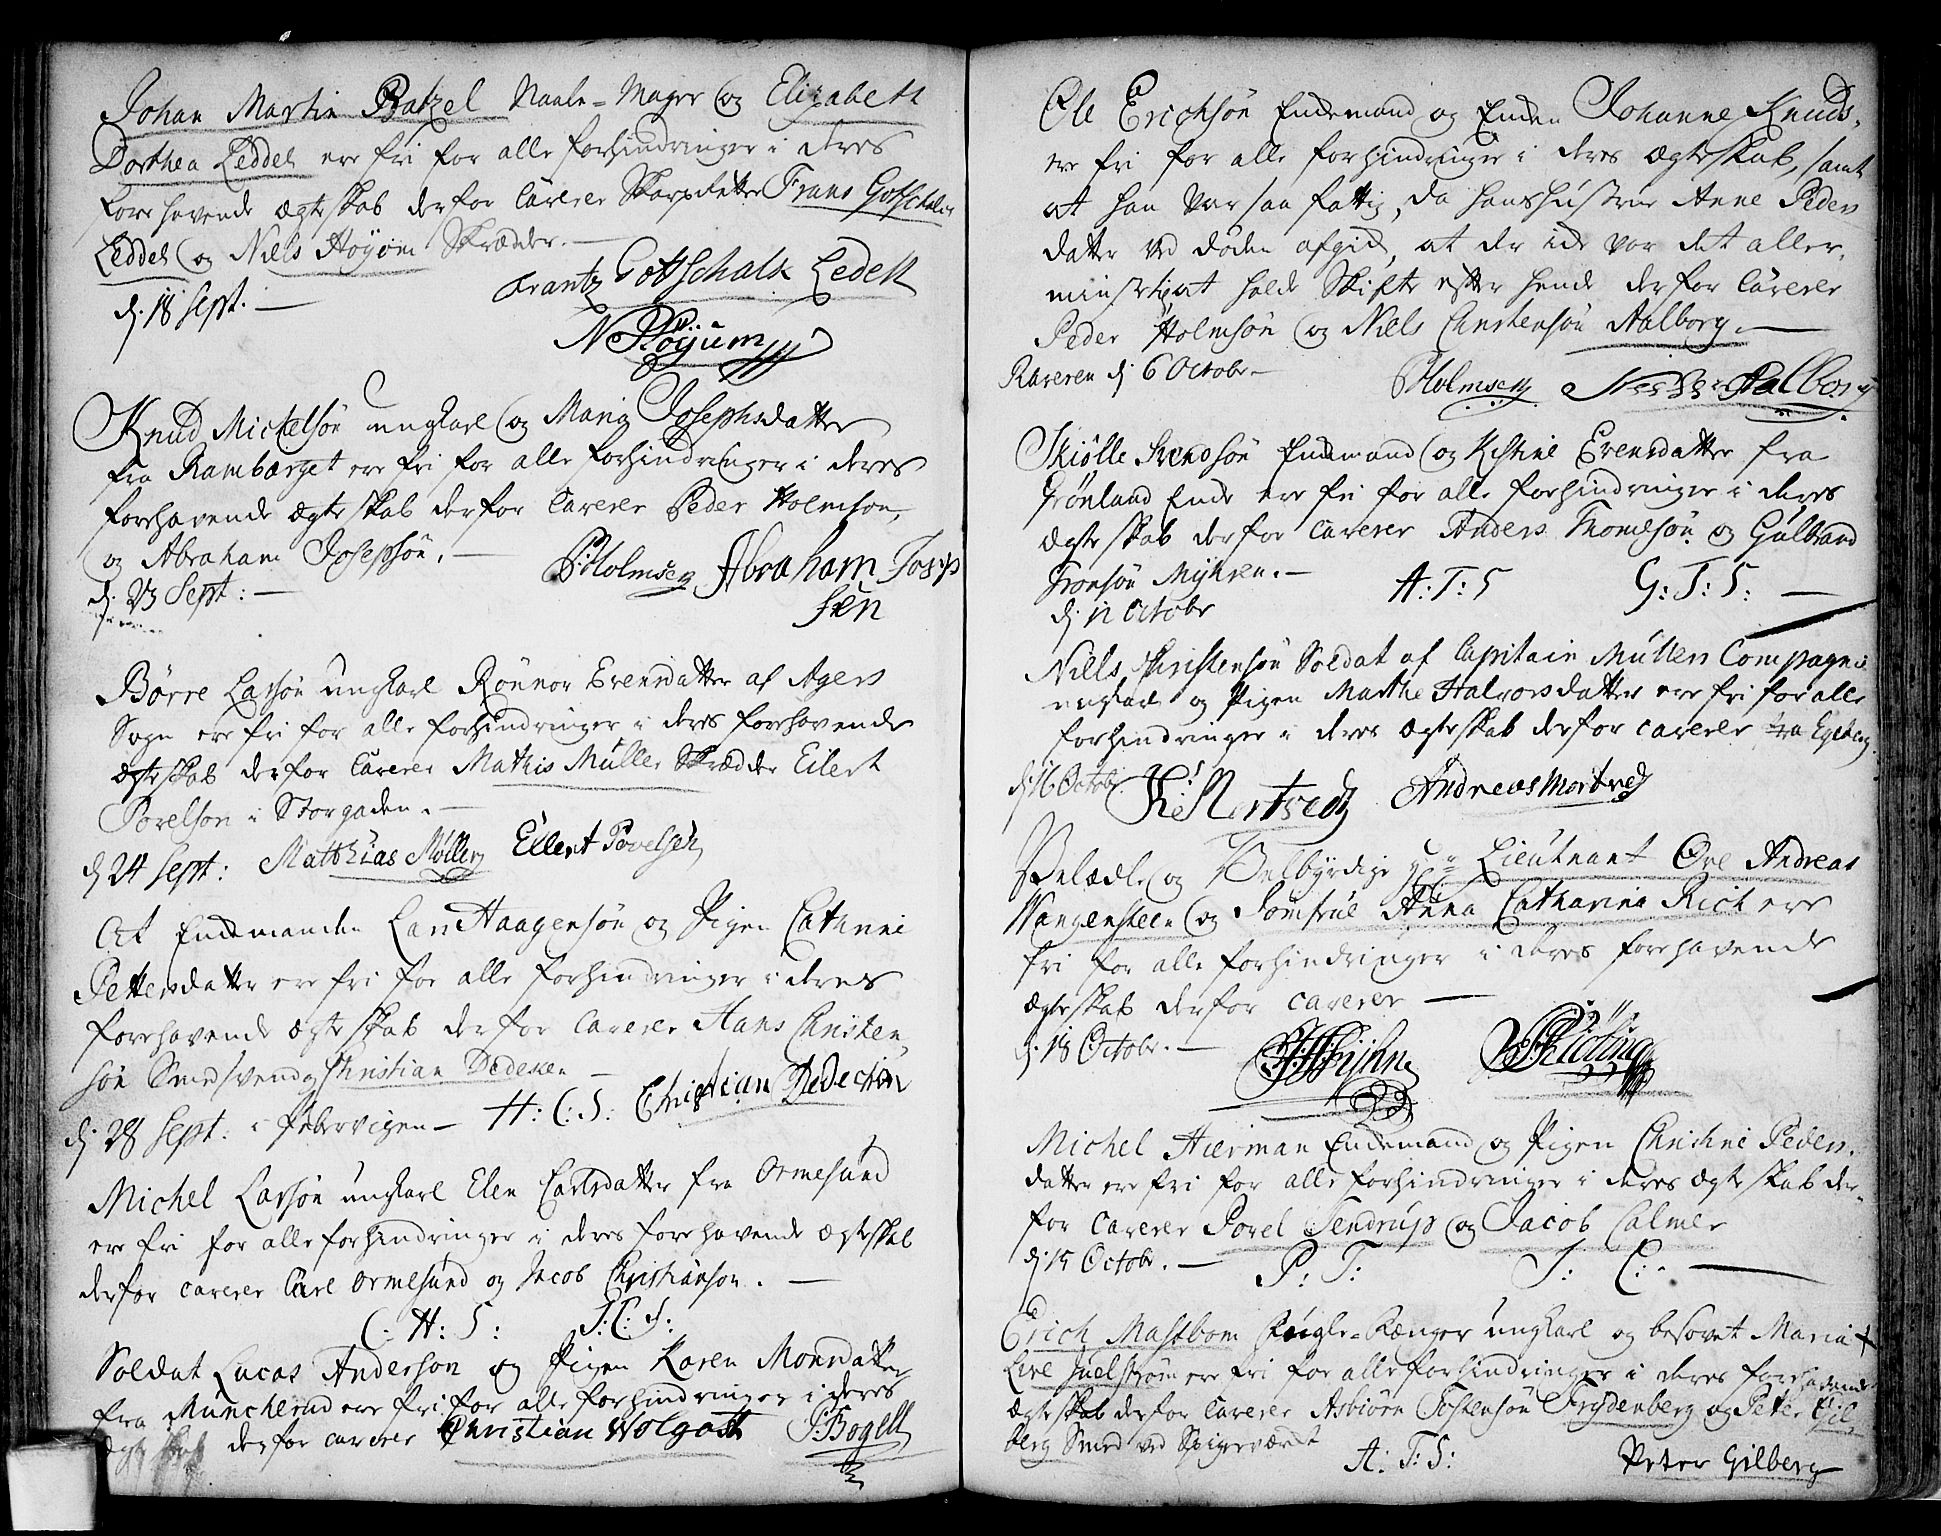 Johan Martin Batzel Naale-Mager og Elizabeth
Dorthea Leddel ere fri for alle forhindringer i deres
forehavende ægteskab derfor Caverer Frans Gotschalck
Leddel og Niels Høyom Skrædder. —
Frantz Gottschalk Ledell
d. 18 Sept. —
N Höyüm
Knud Mickelsøn ungkarl og Marig Josephsdatter
fra Rambærget ere fri for alle forhindringer i deres
forehavende ægteskab derfor Caverer Peder Holmson,
og Abraham Josephsøn. —
P:Holmsen Abraham Josep
d. 23 Sept: —
sen
Børre Larsøn ungkarl Rønnov Evensdatter af Agers
Sogn ere fri for alle forhindringer i deres forehavende
ægteskab derfor Caverer Mathis Müller Skrædder Eilert
Povelsøn i Storgaden. —
d. 24 Sept: Matthias Møller Eilert Povelsen
At Enkemanden Lars Haagensøn og Pigen Cathrine
Pettersdatter ere fri for alle forhindringer i deres
forehavende ægteskab derfor Caverer Hans Christen
søn Smedsvend og Christian Dedeken —
d. 28 Sept. i Pebervigen — H: C: S: Christian Dedechin
Michel Larsøn ungkarl Elen Carlsdatter fra Ormesund
ere fri for alle forhindringer i deres forehavende ægteskab
derfor Caverer Carl Ormesund og Jacob Christiansøn. —
C: H: S: J: C: S:
Soldat Lucas Anderson og Pigen Karen Monsdatter
fra Müncherud ere fri for alle forhindringer i deres
ægteskab derfor caverer Christian Wolgast J:Bogell
Ole Erichsøn Enkemand og Enken Johanne Knuds.
ere fri for alle forhindringer i deres ægteskab, samt
at han var saa fattig, da hans hustrue Anne Peders
datter ved døden afgik, at der ike var det aller,
minste at holde Skifte efter hende derfor Caverer
Peder Holmsøn og Niels Christensøn Aalborg. —
d 6 Octobr —
P:Holmsen Aalborg
Skiölle Svendsøn Enkemand og Kistine Evensdatter fra
Grönland Enke ere fri for alle forhindringer i deres
ægteskab derfor Caverer Anders Thomesøn og Gulbrand
Tronsøn Myhren. — A: T: S G: T: S: —
d. 12 Octobr
Niels Christensøn Soldat af Capitain Müllers Compagnie
ungkarl og Pigen Marthe Halvorsdatter ere fri for alle
forhindringer i deres ægteskab derfor caverer fra Egeberg
d. 16 Octobr. K: Mortved Andreas Mortved
Velædle og Velbyrdige Hr Lieutnant Ove Andreas
Wangensteen og Jomfrue Anna Catharina Rich ere
fri for alle forhindringer i deres forehavende
ægteskab derfor caverer —
d. 18 Octobr. —
Michel Hierman Enkemand og Pigen Christine Peders.
datter ere fri for alle forhindringer i deres ægteskab der-
for Caverer Povel Tendrup og Jacob Calmer
d. 15 Octobr. — P: T: J: C: —
Erich Mastbom ungkarl og besovet Maria
Live Juelstrøm ere fri for alle forhindringer i deres forehavende
ægteskab derfor Caverer Asbiørn Tostensøn Frydenberg og Peter Gil
berg Smed ved Spigerværet
A: T: S: Peter Gilberg